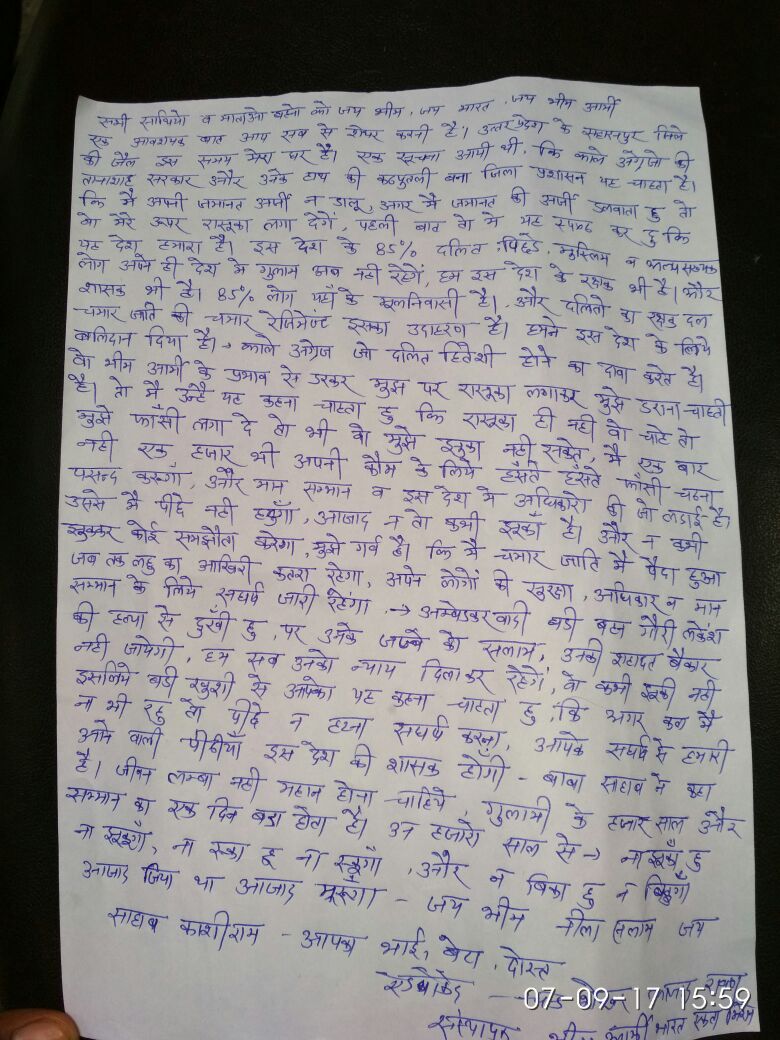 सभी साथियो व माताओ बहनो को जय भीम, जय भारत, जय भीम आर्मी
एक आवश्यक बात आप सब से शेयर करनी है। उत्तर प्रदेश के सहारनपुर जिले
की जेल इस समय मेरा घर है। एक सूचना आयी थी, कि काले अंग्रेजो की
तानाशाह सरकार और उनके हाथ की कठपुतली बना जिला प्रशासन यह चाहता है।
कि मै अपनी जमानत अर्जी न डालू, अगर मै जमानत की अर्जी डलवाता हु तो
वो मेरे ऊपर रासूका लगा देगें, पहली बात तो मै यह स्पष्ट कर दु कि
यह देश हमारा है। इस देश के 85% दलित, पिछडे, मुस्लिम व अल्पसंख्यक
लोग अपने ही देश मे गुलाम अब नही रहेगें, हम इस देश के रक्षक भी है। और
शासक भी है। 85% लोग यहाँ के मूलनिवासी है। और दलितो का रक्षक दल
चमार जाति की चमार रेजिमेण्ट इसका उदाहरण है। हमने इस देश के लिये
बलिदान दिया है। → काले अंग्रेज जो दलित हितेशी होने का दावा करते है।
वो भीम आर्मी के प्रभाव से डरकर मुझ पर रासूका लगाकर मुझे डराना चाहती
है। तो मै उन्हे यह कहना चाहता हु कि रासूका ही नही वो चाहे तो
मुझे फाँसी लगा दे तो भी वो मुझे झुका नही सकते, मै एक बार
नही एक हजार भी अपनी कौम के लिये हँसते हँसते फाँसी चढना
पसन्द करूगाँ, और मान सम्मान व इस देश मे अधिकारो की जो लडाई है।
उससे मै पीछे नही हटुगाँ, आजाद न तो कभी झुका है। और न कभी
झुककर कोई समझौता करेगा, मुझे गर्व है। कि मै चमार जाति मै पैदा हुआ
जब तक लहु का आखिरी कतरा रहेगा, अपने लोगों की सुरक्षा, अधिकार व मान
सम्मान के लिये सघर्ष जारी रहेगा → अम्बेडकरवादी बडी बहन गौरी लंकेश
की हत्या से दुखी हु, पर उनके जज्बे को सलाम, उनकी शहादत बेकार
नही जायेगी, हम सब उनको न्याय दिलाकर रहेगें, वो कभी झुकी नही
इसलिये बडी खुशी से आपको यह कहना चाहता हु, कि अगर कल मै
ना भी रहु तो पीछे न हटना सघर्ष करना, आपके सघर्ष से हमारी
आने वाली पीढीयाँ इस देश की शासक होंगी - बाबा साहब ने कहा
है। जीवन लम्बा नही महान होना चाहिये, गुलामी के हजार साल और
सम्मान का एक दिन बडा होता है। उन हजारो साल से → ना झुका हु
ना झुकुगाँ, ना रूका हू ना रूकुगाँ, और न बिका हु न बिकुगाँ
आजाद जिया था आजाद मरूगा - जय भीम नीला सलाम जय
साहब काशीराम - आपका भाई, बेटा, दोस्त
एडवोकेट आजाद रावण
संस्थापक भीम आर्मी भारत एकता मिशन
07-09-17 15:59